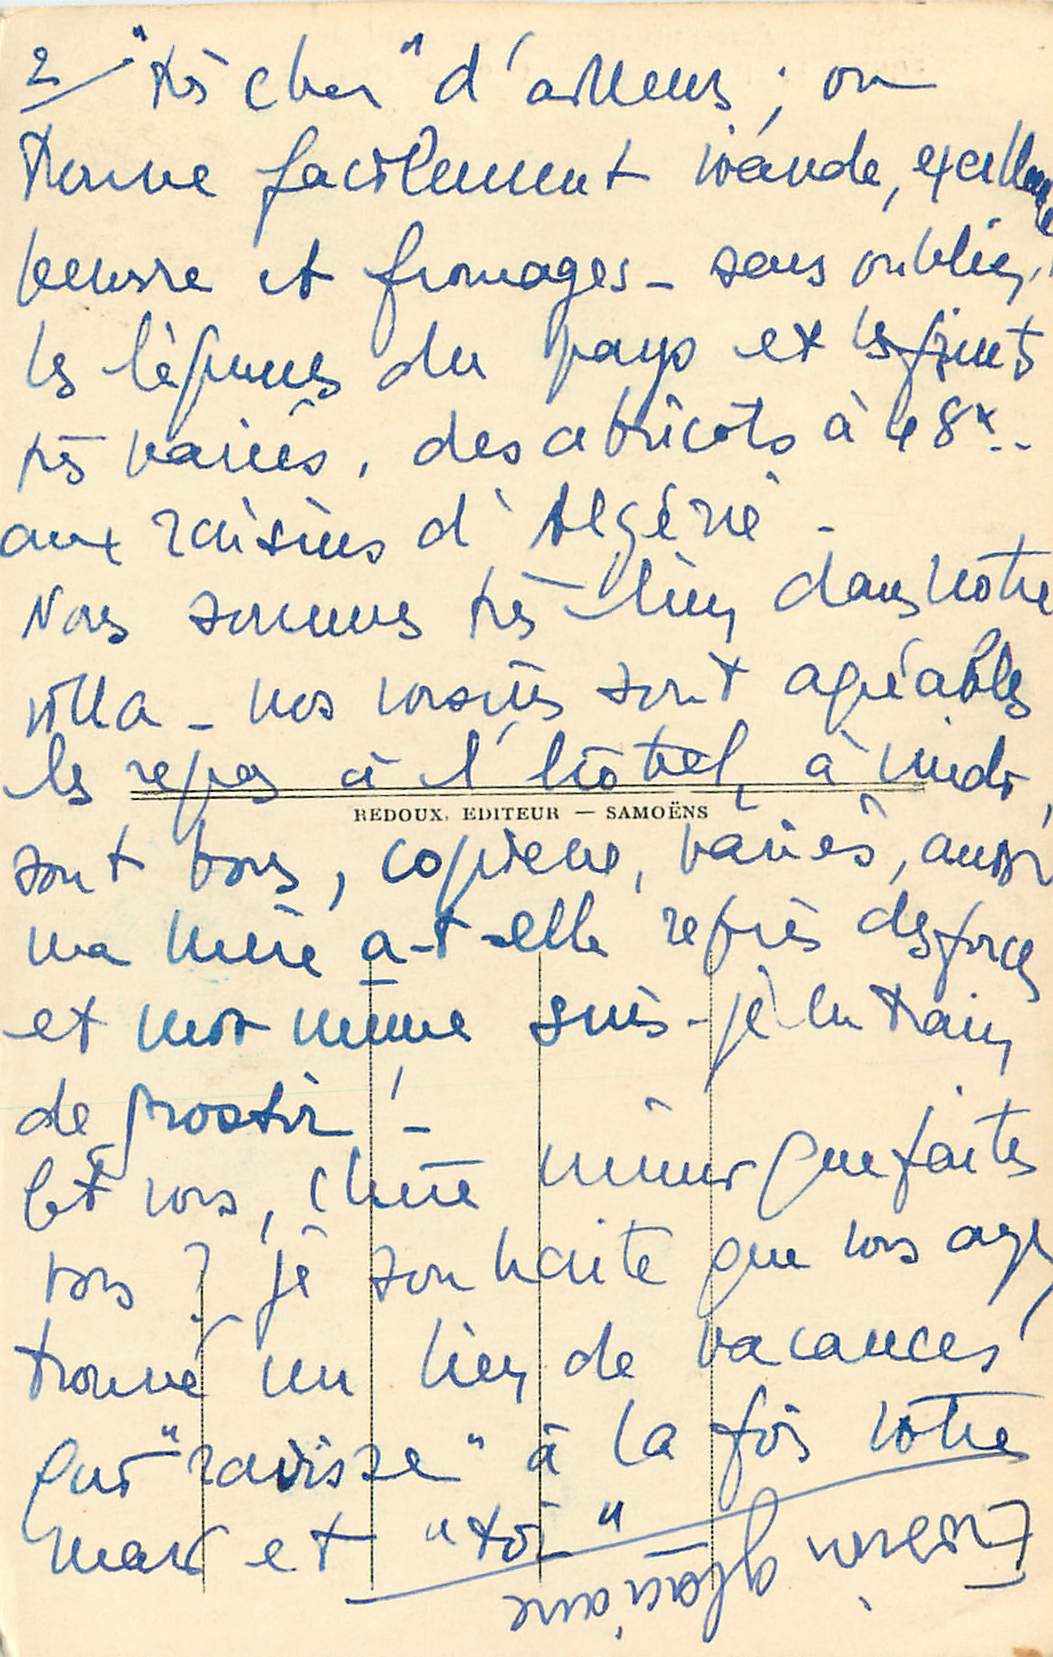 2/ "très cher" d'ailleurs ; on
trouve facilement viande, excellent
beurre et fromages - sans oublier,
les légumes du pays et les fruits
très variés, des abricots à 48 x..
aux raisins d'Algérie -
Nous sommes très bien dans notre
villa - nos voisins sont agréables
les repas à l'hôtel, à midi,
REDOUX, EDITEUR — SAMOËNS
sont bons, copieux, variés, aussi
ma mère a-t-elle repris des forces
et moi même suis-je en train
de grossir ! -
Et vous, chère que faites
vous ? je souhaite que vous ayez
trouvé un lieu de vacances
qui "ravisse" à la fois votre
mari et "toi"
Érosion glaciaire